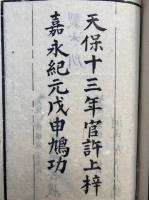 天保十三年官許上梓
嘉永紀元戊申鳩功